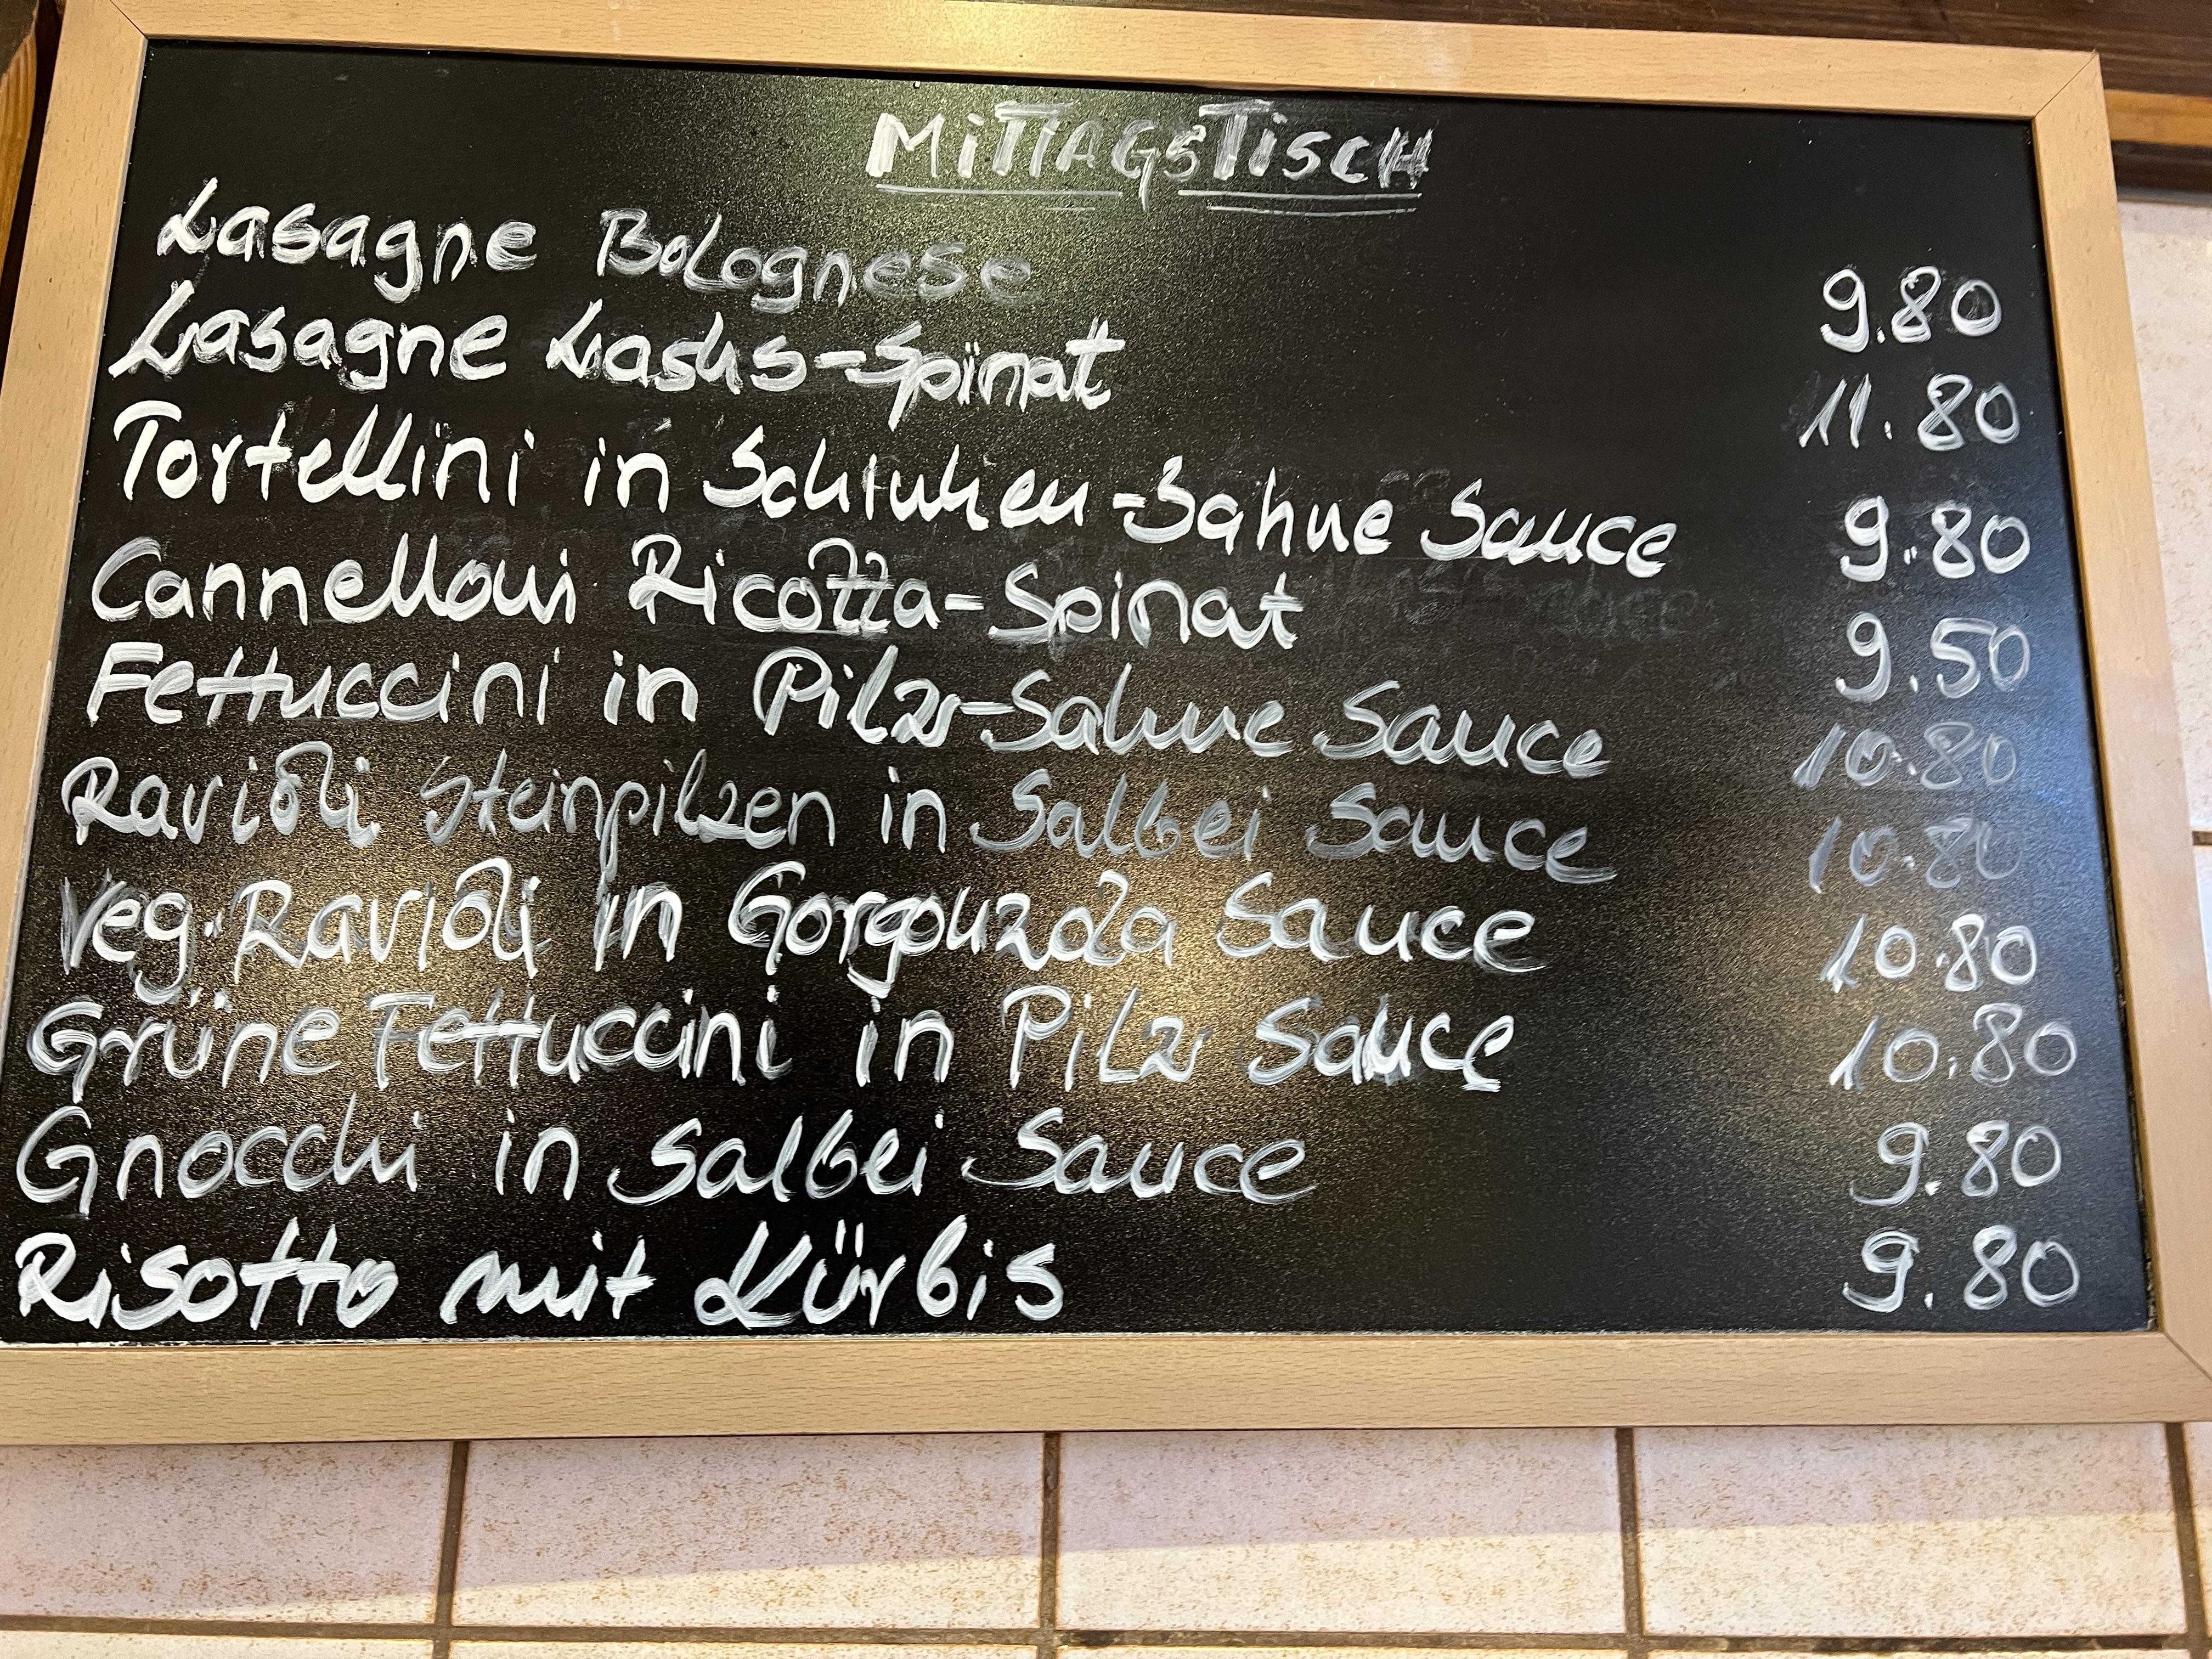 MiTTAGSTiSCH
Lasagne Bolognese 9.80
Lasagne Lachs-Spinat 11.80
Tortellini in Schinken-Sahne Sauce 9.80
Cannelloni Ricotta-Spinat 9.50
Fettuccini in Pilz-Sahne Sauce 10.80
Ravioli Steinpilzen in Salbei Sauce 10.80
Veg. Ravioli in Gorgonzola Sauce 10.80
Grüne Fettuccini in Pilz Sauce 10.80
Gnocchi in Salbei Sauce 9.80
Risotto mit Kürbis 9.80